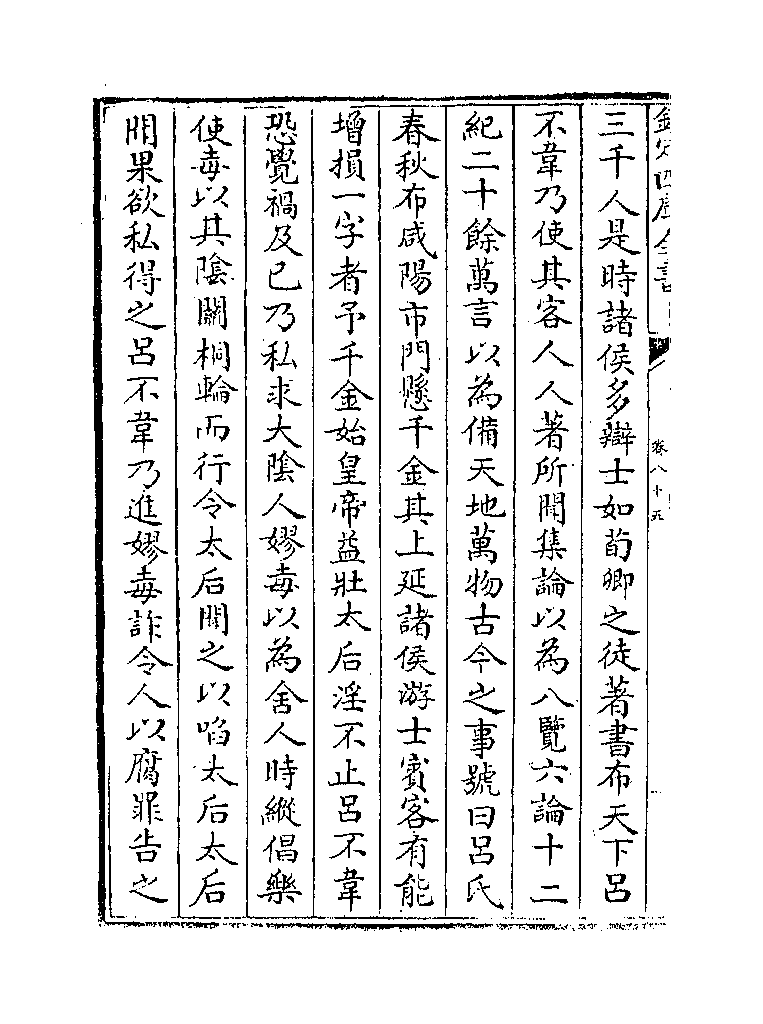 欽定四庫全書
卷八十五
三千人是時諸侯多辯士如荀卿之徒著書布天下呂
不韋乃使其客人人著所聞集論以為八覽六論十二
紀二十餘萬言以為備天地萬物古今之事號曰呂氏
春秋布咸陽市門懸千金其上延諸侯游士賓客有能
增損一字者予千金始皇帝益壯太后淫不止呂不韋
恐覺禍及己乃私求大陰人嫪毐以為舍人時縱倡樂
使毐以其陰關桐輪而行令太后聞之以啗太后太后
聞果欲私得之呂不韋乃進嫪毐詐令人以腐罪告之